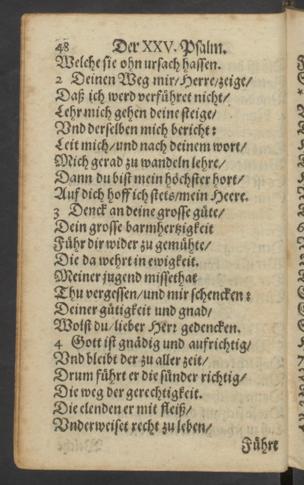 48 Der XXV. Psalm.
Welche sie ohn ursach hassen.
2 Deinen Weg mir/Herre/zeige/
Daß ich werd verführet nicht/
Lehr mich gehen deine steige/
Vnd derselben mich bericht:
Leit mich/und nach deinem wort/
Mich gerad zu wandeln lehre/
Dann du bist mein höchster hort/
Auf dich hoff ich stets/mein Heere.
3 Denck an deine grosse güte/
Dein grosse barmhertzigkeit
Führ dir wider zu gemühte/
Die da wehrt in ewigkeit.
Meiner jugend missethat
Thu vergessen/und mir schencken:
Deiner gütigkeit und gnad/
Wolst du/lieber Herr gedencken.
4 Gott ist gnädig und aufrichtig/
Vnd bleibt der zu aller zeit/
Drum führt er die sünder richtig/
Die weg der gerechtigkeit.
Die elenden er mit fleiß/
Vnderweiset recht zu leben/
Führt